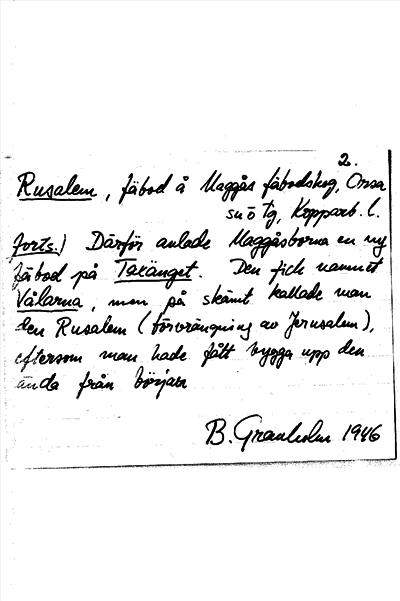 2.
Rusalem, fäbod å Maggås fäbodskog, Orsa
sn ö tg, Kopparb. l.
forts.) Därför anlade Maggåsborna en ny
fäbod på Taxänget. Den fick namnet
Vålarna, men på skämt kallade man
den Rusalem (förvrängning av Jerusalem),
eftersom man hade fått bygga upp den
ända från början
B. Granholm 1946